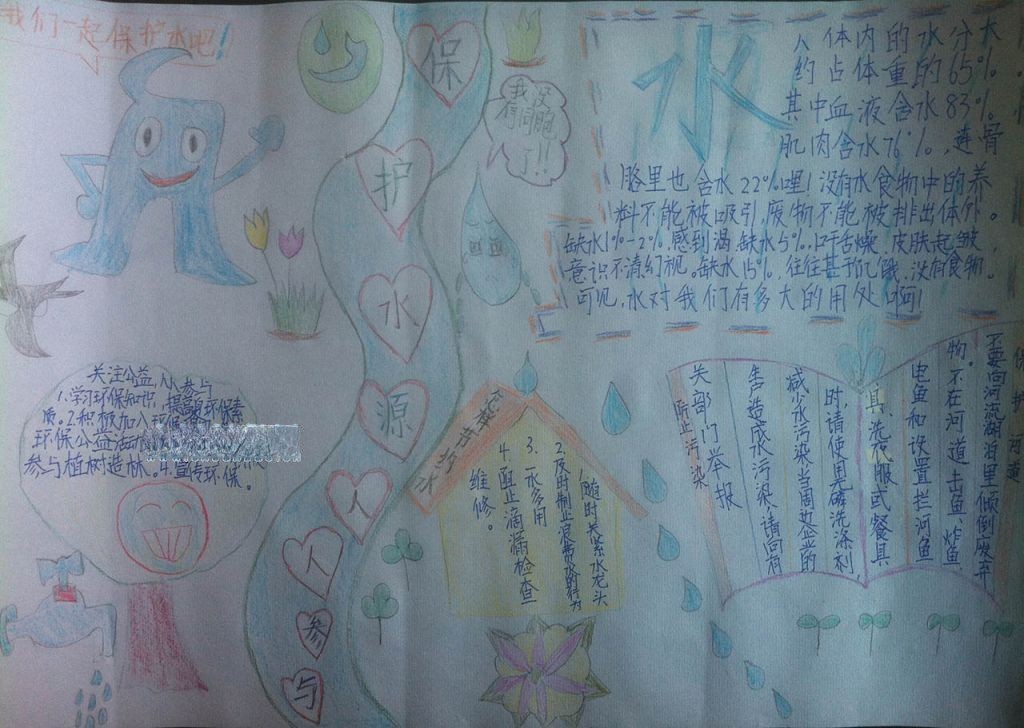 我们一起保护水吧!
保
护
水
源
人
人
参
与
我没
有同胞
了!!
水
人体内的水分大
约占体重的65%。
其中血液含水83%。
肌肉含水76%，连骨
骼里也含水22%哩!没有水食物中的养
料不能被吸引,废物不能被排出体外。
缺水1%-2%,感到渴.缺水5%.口干舌燥,皮肤起皱
意识不清幻视。缺水15%,往往甚于饥饿.没有食物。
可见,水对我们有多大的用处啊!
关注公益,人人参与
1.学习环保知识,提高环保素
质。2.积极加入环保
环保公益活动
参与植树造林。4.宣传环保。
怎样节约水
1.随时关紧水龙头
2.及时制止浪费水的行为
3.一水多用
4.阻止滴漏检查
维修。
保护河道
不要向河流湖泊里倾倒废弃
物。不在河道击鱼、炸鱼
电鱼和设置拦河鱼
具,洗衣服或餐具
时,请使用无磷洗涤剂,
减少水污染当周边企业的
生产造成水污染,请向有
关部门举报
防止污染